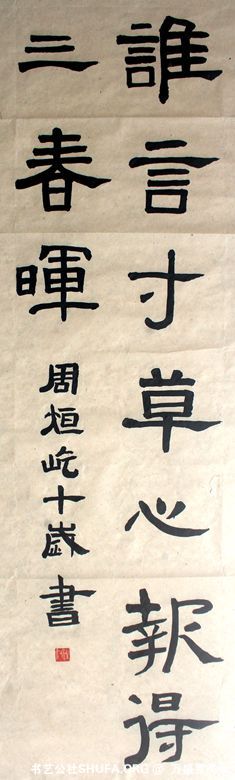 誰言寸草心報得
三春暉
周桓屹十歲書
书艺公社SHUFA.ORG@